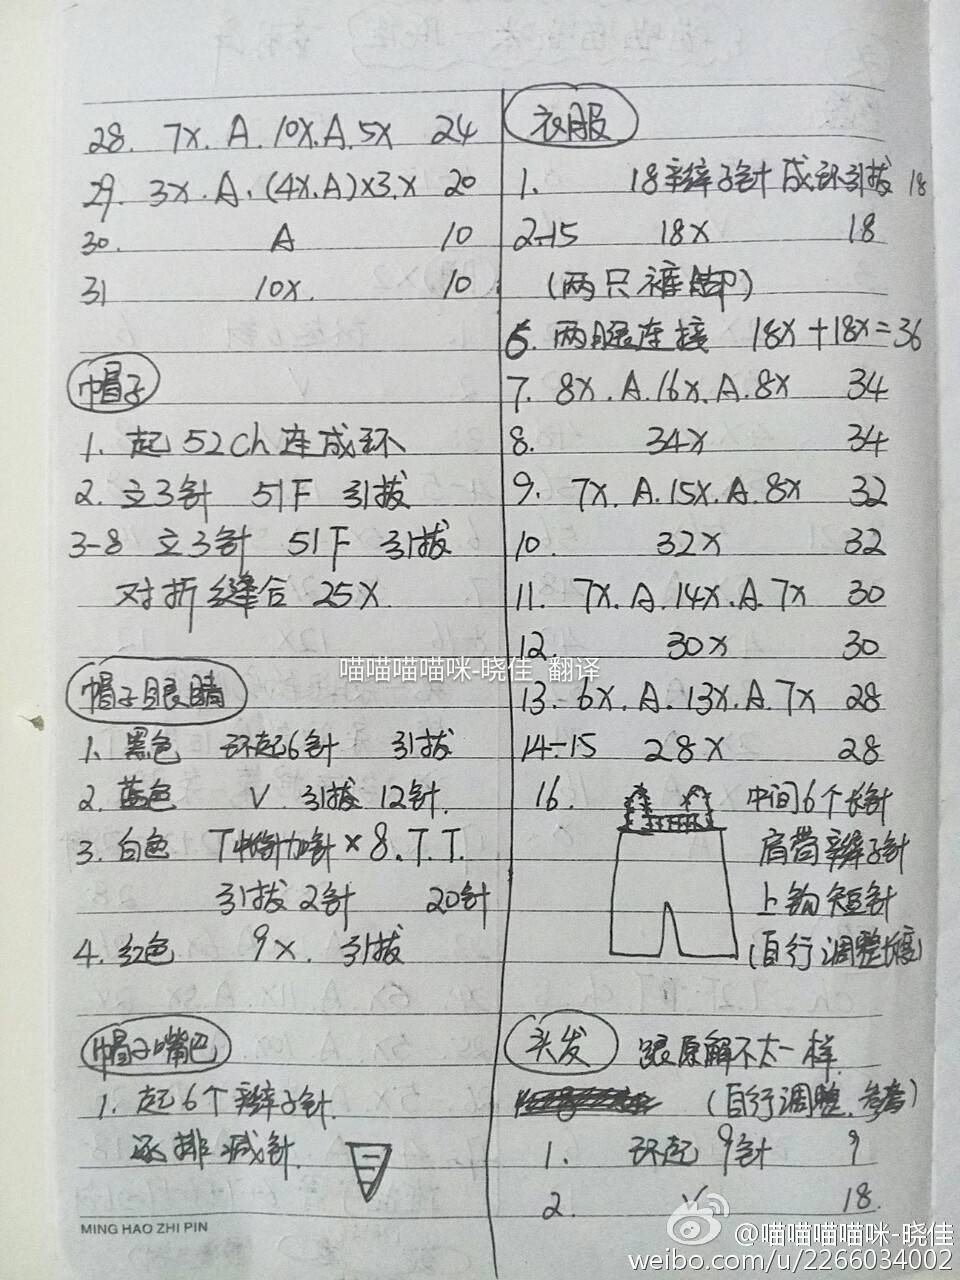 28. 7X. A. 10X. A. 5X 24
29. 3X. A. (4X. A)×3. X 20
30. A 10
31 10X. 10
帽子
1. 起52ch连成环
2. 立3针 51F 引拔
3-8 立3针 51F 引拔
对折缝合 25X.
帽子眼睛
1. 黑色 环起6针 引拔
2. 蓝色 V. 引拔 12针.
3. 白色 T中长针加针×8. T. T.
引拔2针 20针
4. 红色 9X. 引拔
帽子嘴巴
1. 起6个辫子针.
逐排减针.
MING HAO ZHI PIN
衣服
1. 18辫子针 成环引拔 18
2-15 18X 18
(两只裤脚)
6. 两腿连接 18X+18X=36
7. 8X. A. 16X. A. 8X 34
8. 34X 34
9. 7X. A. 15X. A. 8X 32
10. 32X 32
11. 7X. A. 14X. A. 7X 30
12. 30X 30
13. 6X. A. 13X. A. 7X 28
14-15 28X 28
16. 中间6个长针
肩带辫子针
上钩短针
(自行调整长度)
头发 跟原解不太一样.
(自行调整.参考)
1. 环起9针 9
2. V 18.
喵喵喵喵咪-晓佳 翻译
@喵喵喵喵咪-晓佳
weibo.com/u/2266034002